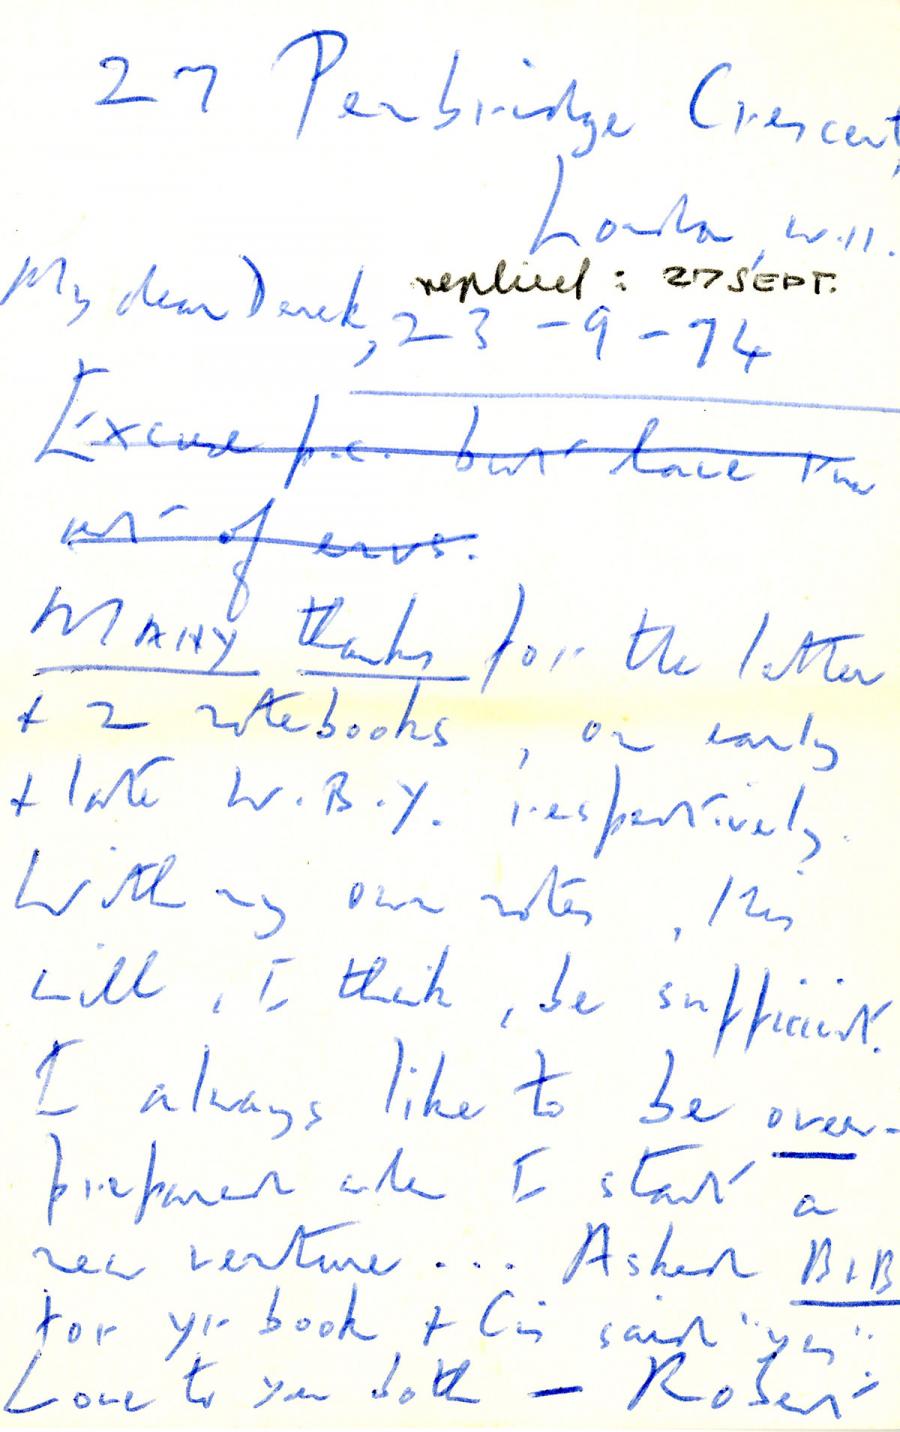 27 Pembridge Crescent,
London, W.11.
replied : 27 SEPT.
My dear Derek, 23-9-74
Excuse p.c. but have run
out of envs.
MANY thanks for the letter
+ 2 notebooks, on early
+ late W.B.Y. respectively.
With my own notes, this
will, I think, be sufficient.
I always like to be over-
prepared when I start a
new venture ... Asked B&B
for yr book + Cis said "yes".
Love to you both — Robert